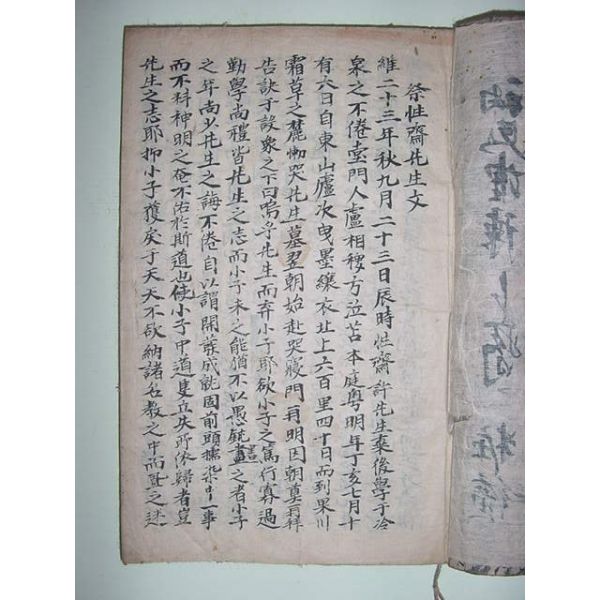 祭性齋先生文
維二十三年秋九月二十三日辰時性齋許先生棄後學于冷
泉之不倦堂門人盧相稷方泣苫本庭粵明年丁亥七月十
有六日自東山廬次曳墨縗衣北上六百里四十日而到果川
霜草之麓慟哭先生墓翌朝始赴哭寢門再明因朝奠羞拜
告訣于設象之下曰嗚乎先生而弃小子耶欲小子之篤行寡過
勤學尚禮皆先生之志而小子未之能猶不以愚鈍晝言之者小子
之年尚少先生之誨不倦自以謂開發成就固前頭擩染中一事
而不料神明之奄不佑於斯道也使小子中道隻立失所依歸者豈
先生之志耶抑小子獲戾于天天不欲納諸名教之中而置之迷